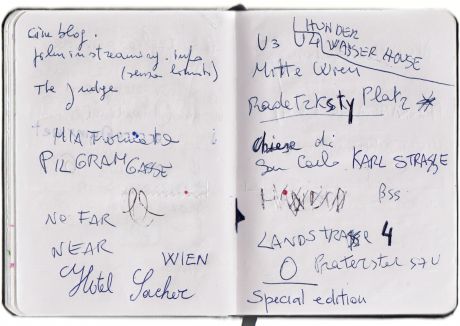 cine blog.
film in streaming. info
(senza limiti)
The Judge
MIA
PILGRAM GASSE
NO FAR
NEAR
WIEN
Hotel Sacher
HUNDER
U3 U4 WASSER HOUSE
Mitte Wien
Radetzksty Platz
chiese di
San Carlo KARL STRASSE
LANDSTRASSE 4
O Praterster
Special edition